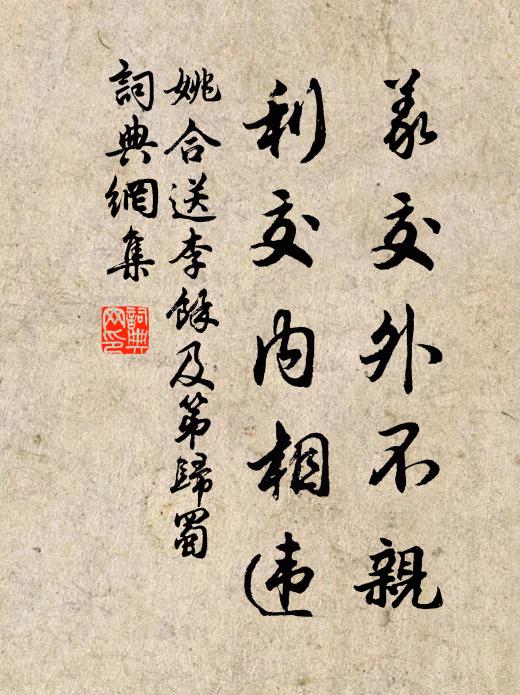 義交外不親
利交内相违
姚合送李餘及第歸蜀
詞典網集
詞典网印